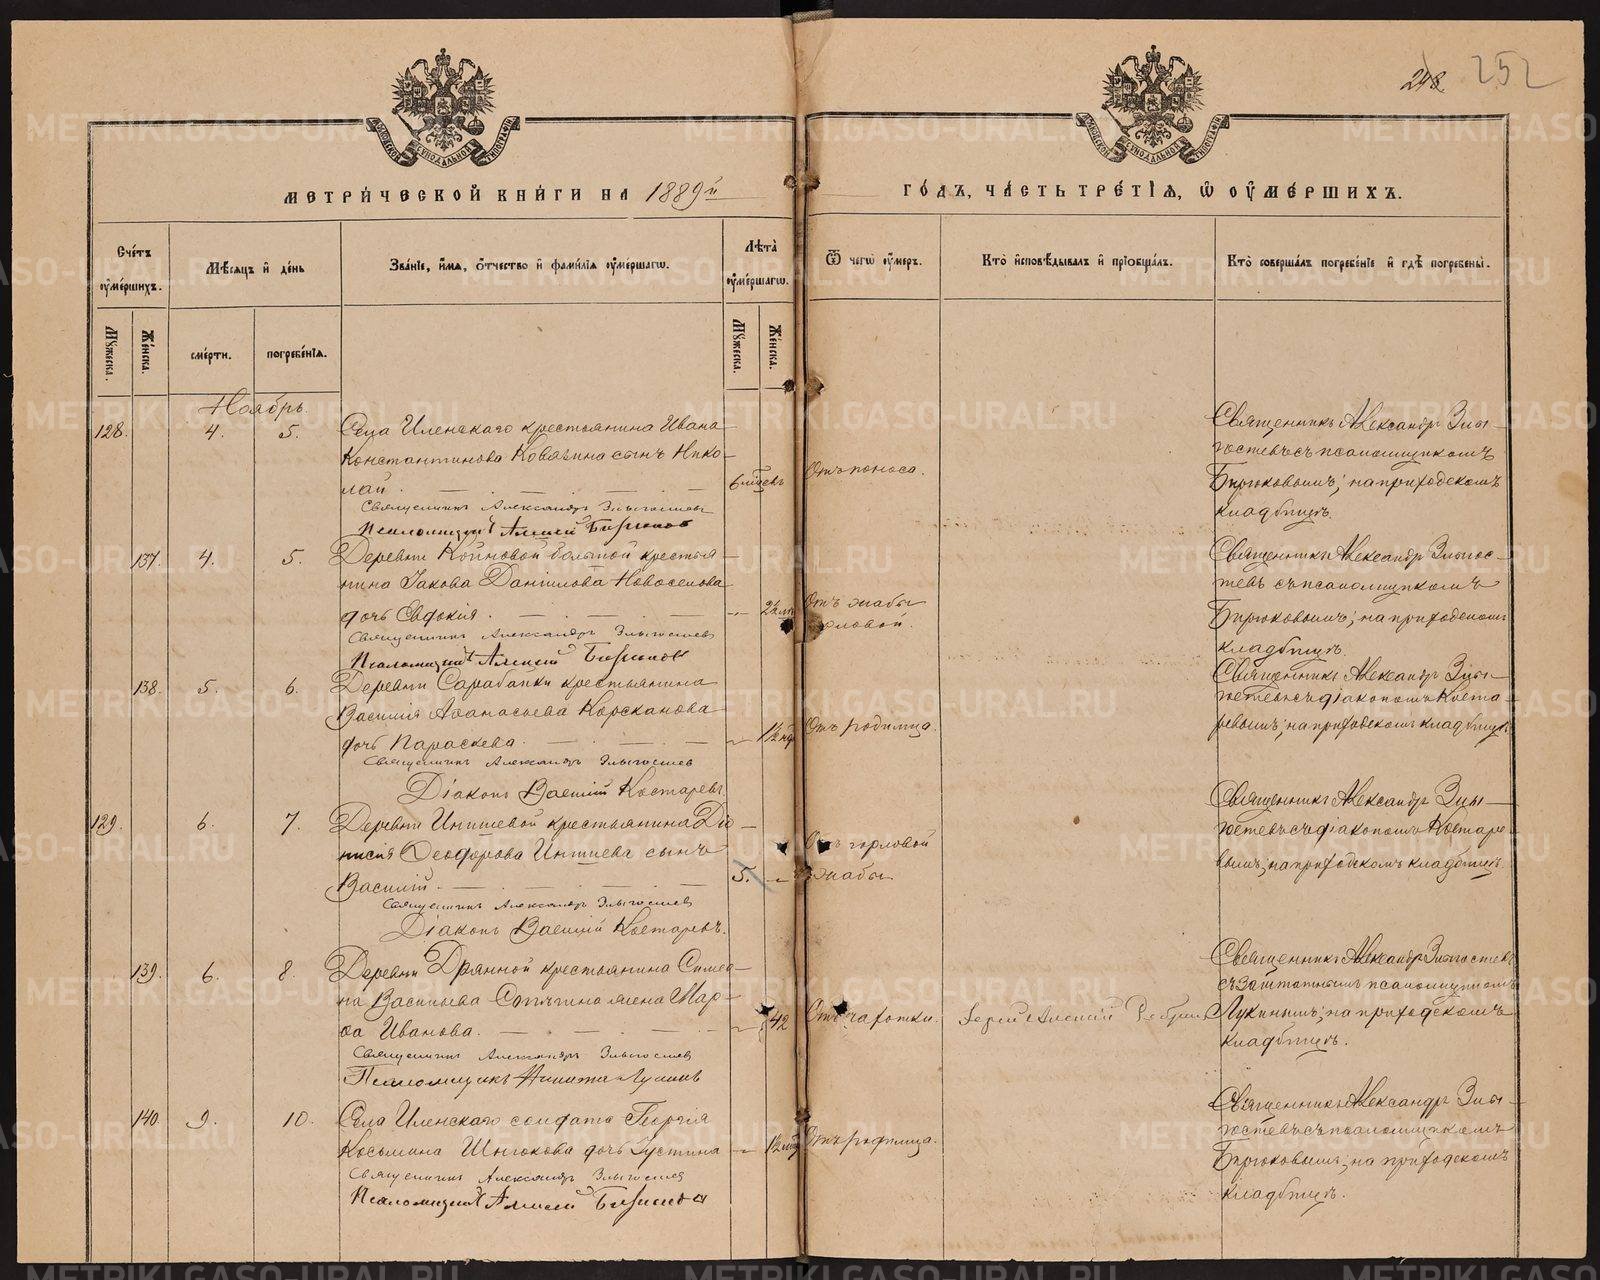 248. 252
МЕТРИ́ЧЕСКОЙ КНИ́ГИ НА 1889й
ГО́ДЪ, ЧА́СТЬ ТРЕ́ТІѦ, Ѡ ОУ҆МЕ́РШИХЪ.
Счётъ оу҆ме́ршихъ.
Мѣ́сѧцъ и҆ де́нь
Зва́нїе, и҆́мѧ, ѻ҆́тчество и҆ фами́лїѧ оу҆ме́ршагѡ.
Лѣ́та оу҆ме́ршагѡ.
Ѿ чегѡ̀ оу҆́меръ.
Кто̀ и҆сповѣ́дывалъ и҆ прїѡбща́лъ.
Кто̀ соверша́лъ погребе́нїе и҆ гдѣ̀ погребены̀.
Му́жеска. Же́нска. сме́рти. погребе́нїѧ. Му́жеска. Же́нска.
Ноябрь.
128. 4. 5.
Села Иленскаго крестьянина Ивана
Константинова Ковязина сынъ Нико-
лай.
Священникъ Александръ Злыгостевъ
Псаломщикъ Алексій Бирюковъ
6 мѣсяцевъ
Отъ поноса.
Священникъ Александръ Злы-
гостевъ съ псаломщикомъ
Бирюковымъ; на приходскомъ
кладбищѣ.
137. 4. 5.
Деревни Койновой большой крестья-
нина Іакова Даніилова Новоселова
дочь Евдокія.
Священникъ Александръ Злыгостевъ
Псаломщикъ Алексій Бирюковъ
2½ лѣт
Отъ жабы
горловой.
Священникъ Александръ Злыгос-
тевъ съ псаломщикомъ
Бирюковымъ; на приходскомъ
кладбищѣ.
138. 5. 6.
Деревни Сарабайки крестьянина
Василія Аѳанасьева Корсканова
дочь Параскева.
Священникъ Александръ Злыгостевъ
Діаконъ Василій Костаревъ
1½ нед
Отъ родимца.
Священникъ Александръ Злы-
гостевъ съ діакономъ Коста-
ревымъ; на приходскомъ кладбищѣ
129. 6. 7.
Деревни Интиевой крестьянина Діо-
нисія Ѳеодорова Интиева сынъ
Василій.
Священникъ Александръ Злыгостевъ
Діаконъ Василій Костаревъ.
5.
Отъ горловой
жабы
Священникъ Александръ Злы-
гостевъ съ діакономъ Костаре-
вымъ; на приходскомъ кладбищѣ.
139. 6. 8.
Деревни Дрянной крестьянина Симео-
на Васильева Сопягина жена Мар-
ѳа Иванова.
Священникъ Александръ Злыгостевъ
Псаломщикъ Никита Лукинъ
42
Отъ чахотки.
Іерей Алексій
Священникъ Александръ Злыгостевъ
съ заштатнымъ псаломщикомъ
Лукинымъ; на приходскомъ
кладбищѣ.
140. 9. 10.
Села Иленскаго солдата Георгія
Косьмина Шнюкова дочь Іустина
Священникъ Александръ Злыгостевъ
Псаломщикъ Алексій Бирюковъ
1½
Отъ родимца.
Священникъ Александръ Злы-
гостевъ съ псаломщикомъ
Бирюковымъ; на приходскомъ
кладбищѣ.
METRIKI.GASO-URAL.RU